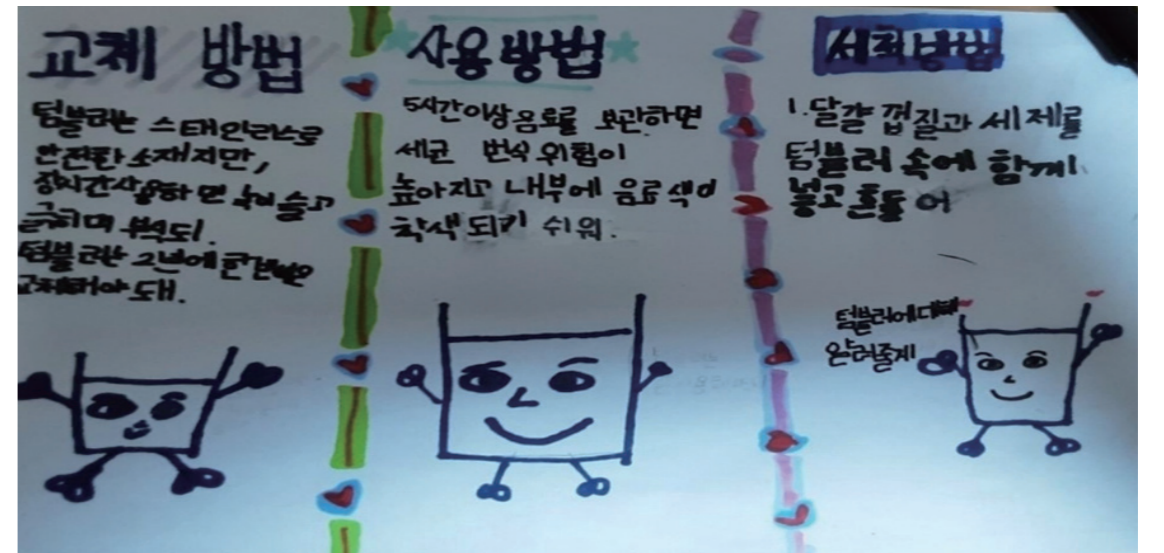 교체 방법
텀블러는 스태인리스로
안전한 소재지만,
장시간사용하면 녹이슬고
긁히며 부식되.
텀블러는 2년에 한번씩은
교체해야 돼.
사용방법
5시간이상 음료를 보관하면
세균 번식 위험이
높아지고 내부에 음료 색이
착색 되기 쉬워.
세척방법
1. 달걀 껍질과 세제를
텀블러 속에 함께
넣고 흔들어
텀블러에대해
알려줄게